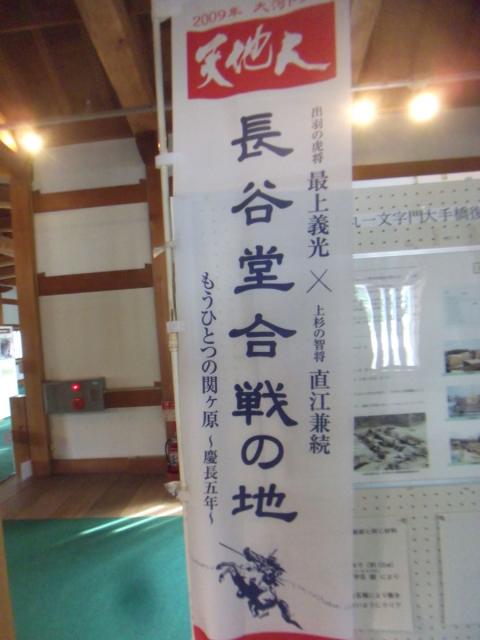 2009年 大河ド
天地人
出羽の虎将 最上義光 × 上杉の智将 直江兼続
長谷堂合戦の地
もうひとつの関ヶ原 ~慶長五年~
一文字門大手橋復